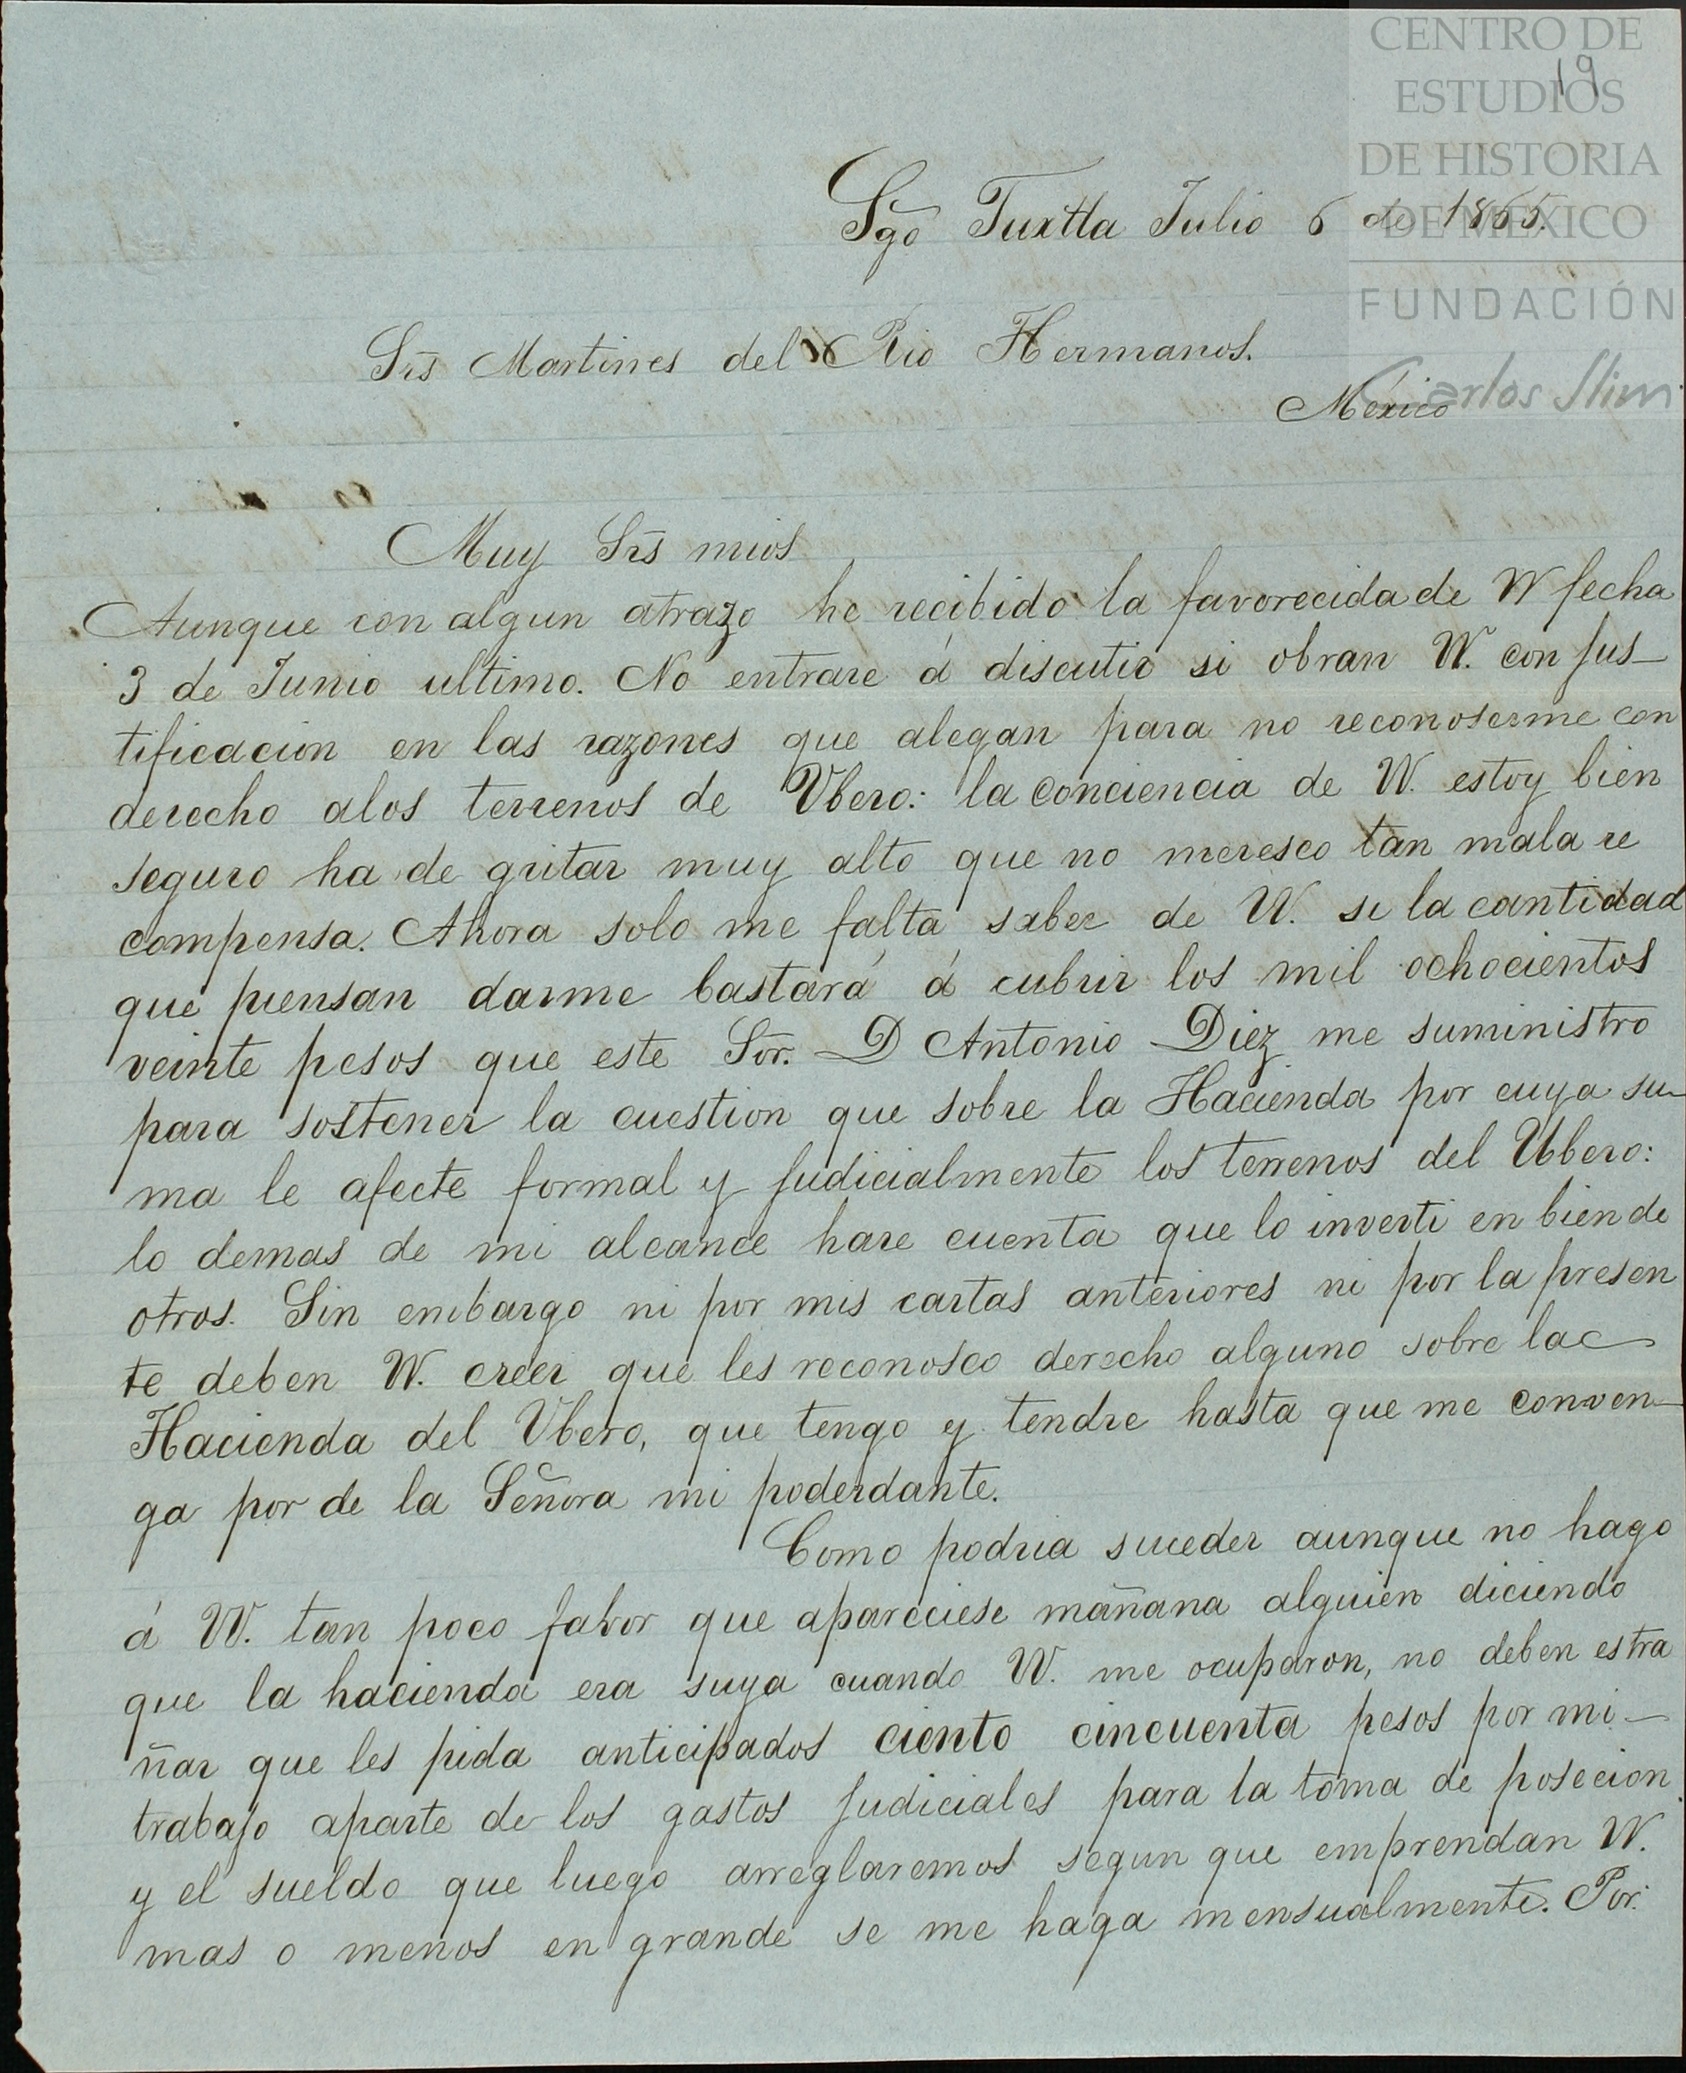 CENTRO DE
ESTUDIOS
DE HISTORIA
DE MÉXICO
FUNDACIÓN
Carlos Slim
19
Sgo Tuxtla Julio 6 de 1865.
Srs Martines del Rio Hermanos.
México
Muy Srs mios
Aunque con algun atrazo he recibido la favorecida de VV fecha
3 de Junio ultimo. No entrare á discutir si obran VV. con jus-
tificacion en las razones que alegan para no reconoserme con
derecho alos terrenos de Ubero: la conciencia de VV. estoy bien
seguro ha de gritar muy alto que no meresco tan mala re
compensa. Ahora solo me falta saber de VV. si la cantidad
que piensan darme bastará á cubrir los mil ochocientos
veinte pesos que este Sor. D Antonio Diez me suministro
para sostener la cuestion que sobre la Hacienda por cuya su-
ma le afecte formal y judicialmente los terrenos del Ubero:
lo demas de mi alcance hare cuenta que lo inverti en bien de
otros. Sin embargo ni por mis cartas anteriores ni por la presen
te deben VV. creer que les reconosco derecho alguno sobre la
Hacienda del Ubero, que tengo y tendre hasta que me conven-
ga por de la Señora mi poderdante.
Como podria suceder aunque no hago
á VV. tan poco fabor que apareciese mañana alguien diciendo
que la hacienda era suya cuando VV. me ocuparon, no deben estra
ñar que les pida anticipados ciento cincuenta pesos por mi-
trabajo aparte de los gastos judiciales para la toma de posecion
y el sueldo que luego arreglaremos segun que emprendan VV.
mas o menos en grande se me haga mensualmente. Por